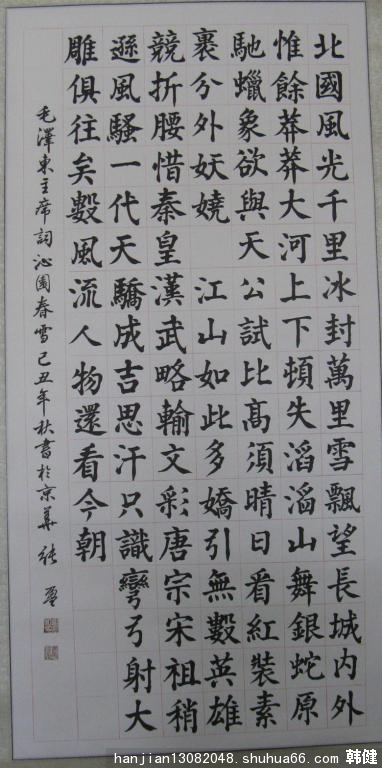 北國風光千里冰封萬里雪飄望長城内外
惟餘莽莽大河上下頓失滔滔山舞銀蛇原
馳蠟象欲與天公試比高須晴日看紅裝素
裹分外妖嬈 江山如此多嬌引無數英雄
競折腰惜秦皇漢武略輸文彩唐宗宋祖稍
遜風騷一代天驕成吉思汗只識彎弓射大
雕俱往矣數風流人物還看今朝
毛澤東主席詞沁園春雪己丑年秋書於京華
hanjian13082048.shuhua66.com 韩健